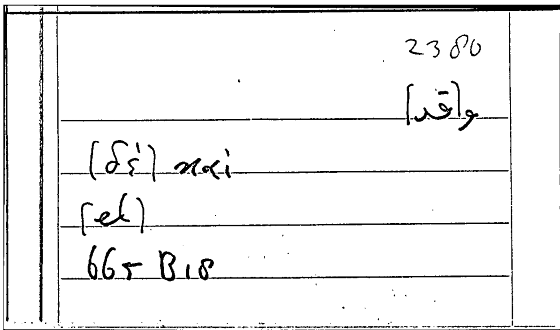 2380
و[قد]
(δέ) καί
[et]
665 B18